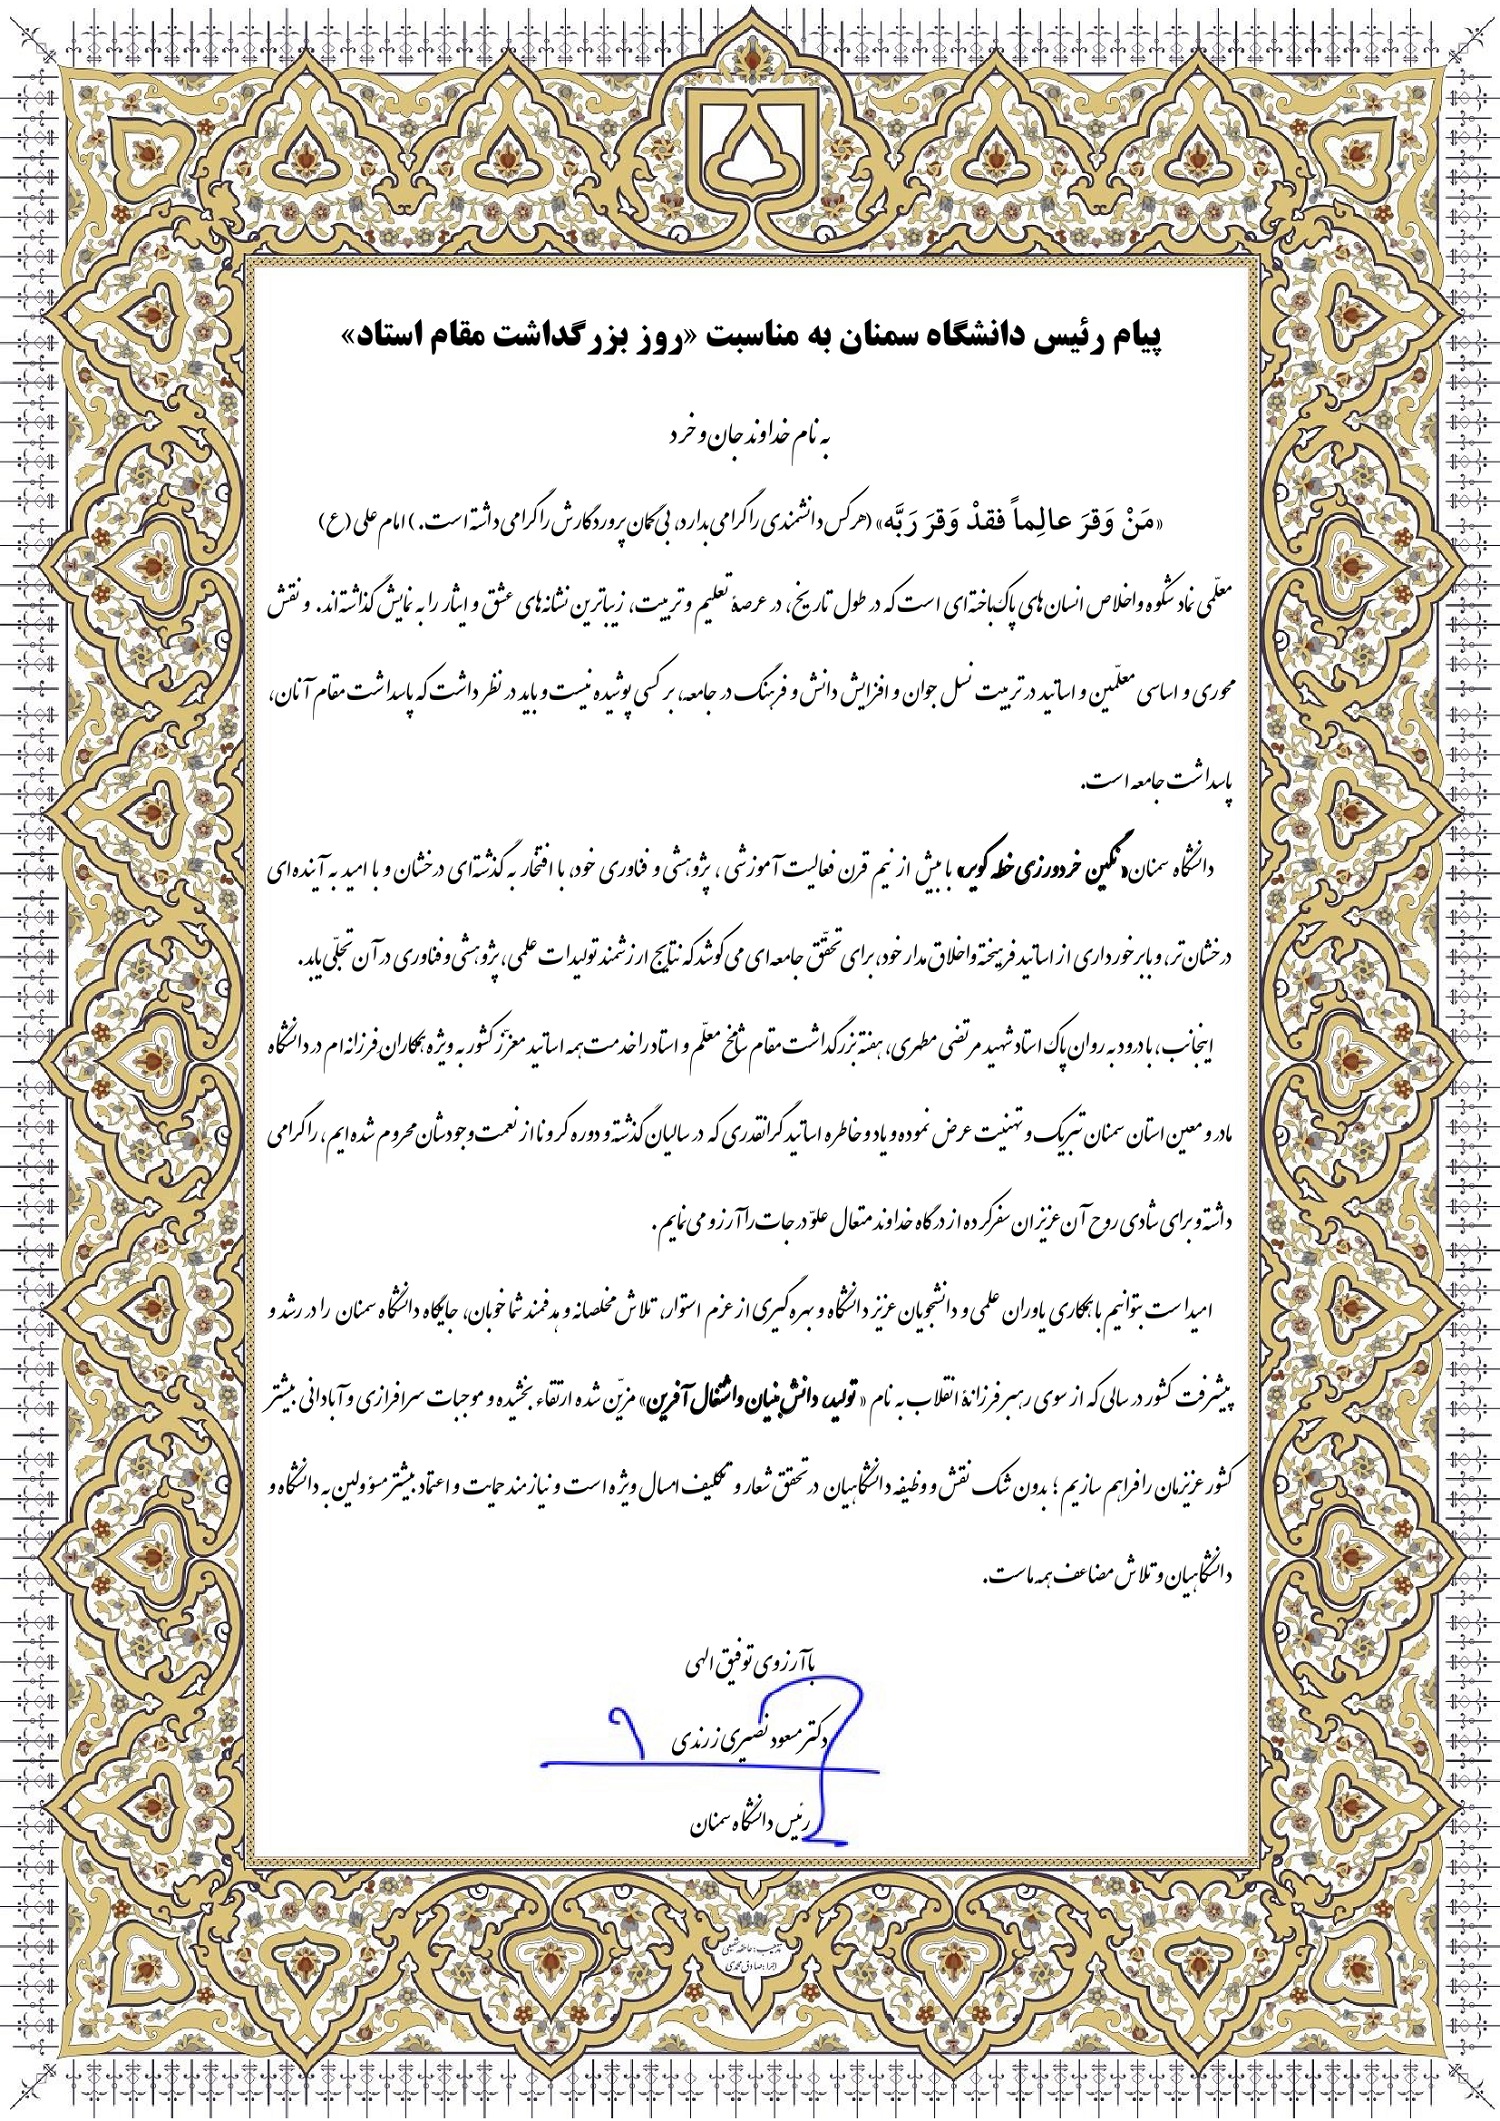 پیام رئیس دانشگاه سمنان به مناسبت «روز بزرگداشت مقام استاد»
به نام خداوند جان و خرد
«مَنْ وَقرَ عالِماً فقدْ وَقرَ رَبَّه» (هرکس دانشمندی را گرامی بدارد، بی‌گمان پروردگارش را گرامی داشته است.) امام علی (ع)
معلّمی نماد شکوه و اخلاص انسان‌های پاک‌باخته‌ای است که در طول تاریخ، در عرصهٔ تعلیم و تربیت، زیباترین نشانه‌های عشق و ایثار را به نمایش گذاشته‌اند. و نقش
محوری و اساسی معلّمین و اساتید در تربیت نسل جوان و افزایش دانش و فرهنگ در جامعه، بر کسی پوشیده نیست و باید در نظر داشت که پاسداشت مقام آنان،
پاسداشت جامعه است.
دانشگاه سمنان «نگین خردورزی خطه کویر» با بیش از نیم قرن فعالیت آموزشی ، پژوهشی و فناوری خود، با افتخار به گذشته‌ای درخشان و با امید به آینده‌ای
درخشان‌تر، و با برخورداری از اساتید فرهیخته و اخلاق مدار خود، برای تحقّق جامعه‌ای می‌کوشد که نتایج ارزشمند تولیدات علمی، پژوهشی و فناوری در آن تجلّی یابد.
اینجانب، با درود به روان پاک استاد شهید مرتضی مطهری، هفته بزرگداشت مقام شامخ معلّم و استاد را خدمت همه اساتید معزّز کشور به ویژه همکاران فرزانه‌ام در دانشگاه
مادر و معین استان سمنان تبریک و تهنیت عرض نموده و یاد و خاطره اساتید گرانقدری که در سالیان گذشته و دوره کرونا از نعمت وجودشان محروم شده‌ایم، را گرامی
داشته و برای شادی روح آن عزیزان سفرکرده از درگاه خداوند متعال علوّ درجات را آرزو می‌نمایم.
امید است بتوانیم با همکاری یاوران علمی و دانشجویان عزیز دانشگاه و بهره‌گیری از عزم استوار، تلاش مخلصانه و هدفمند شما خوبان، جایگاه دانشگاه سمنان را در رشد و
پیشرفت کشور در سالی که از سوی رهبر فرزانهٔ انقلاب به نام «تولید، دانش‌بنیان و اشتغال‌آفرین» مزیّن شده ارتقاء بخشیده و موجبات سرافرازی و آبادانی بیشتر
کشور عزیزمان را فراهم سازیم؛ بدون شک نقش و وظیفه دانشگاهیان در تحقق شعار و تکلیف امسال ویژه است و نیازمند حمایت و اعتماد بیشتر مسؤولین به دانشگاه و
دانشگاهیان و تلاش مضاعف همه ماست.
با آرزوی توفیق الهی
دکتر مسعود نصیری زرندی
رئیس دانشگاه سمنان